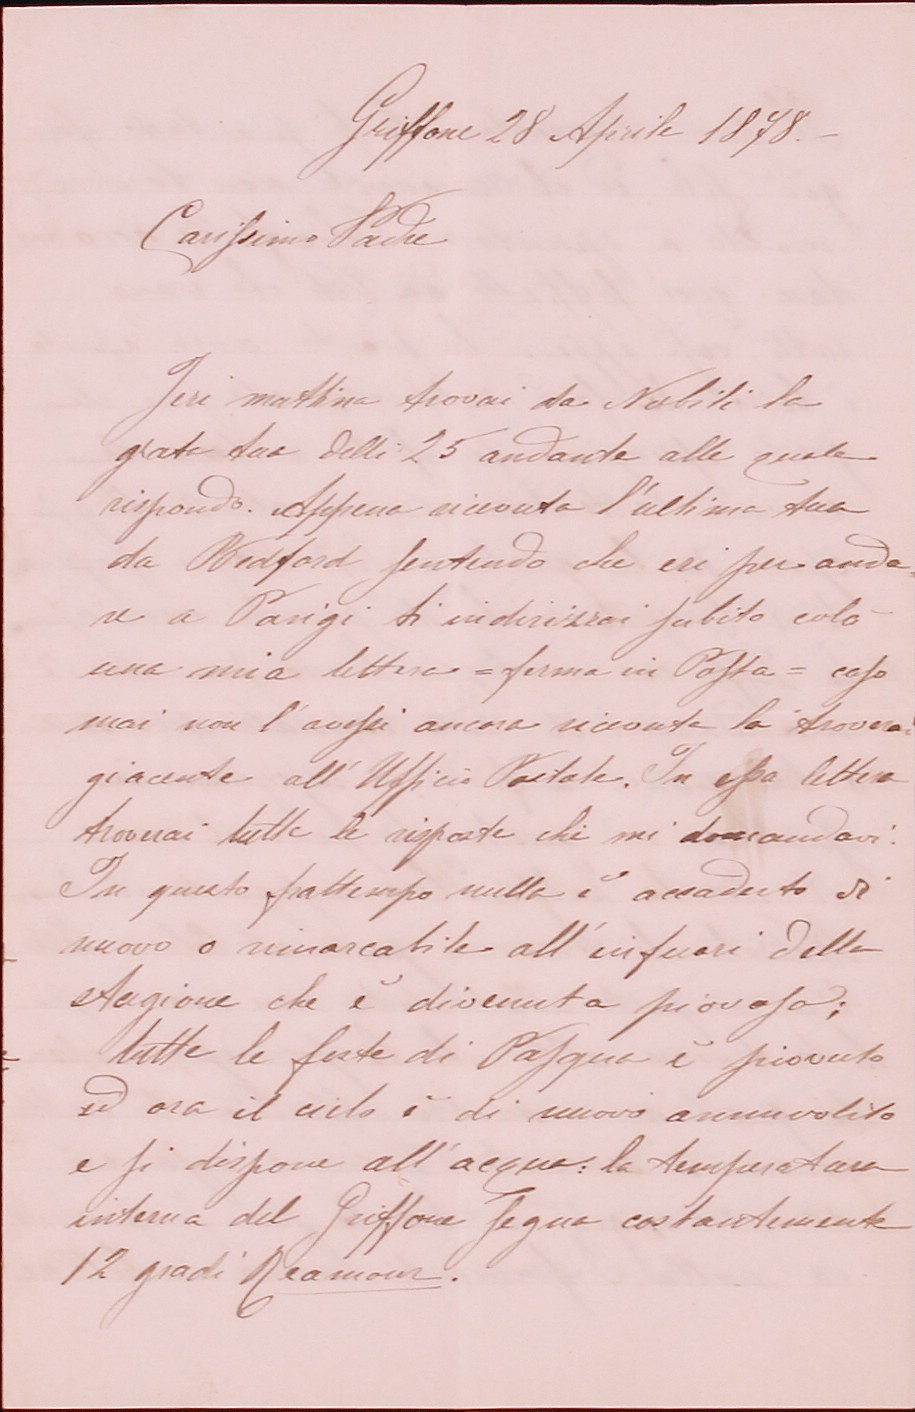 Griffone 28 Aprile 1878.-
Carissimo Padre
Jeri mattina trovai da Nobili la
grata tua delli 25 andante alla quale
rispondo. Appena ricevuta l'ultima tua
da Bedford sentendo che eri per anda=
re a Parigi ti indirizzai subito colà
una mia lettera = ferma in Posta = caso
mai non l'avessi ancora ricevuta la troverai
giacente all'Ufficio Postale. In essa lettera
troverai tutte le risposte che mi domandavi.
In questo frattempo nulla è accaduto di
nuovo o rimarcabile all'infuori della
stagione che è divenuta piovosa;
tutte le feste di Pasqua è piovuto
ed ora il cielo è di nuovo annuvolito
e si dispone all'acqua: la temperatura
interna del Griffone segna costantemente
12 gradi Reamour.